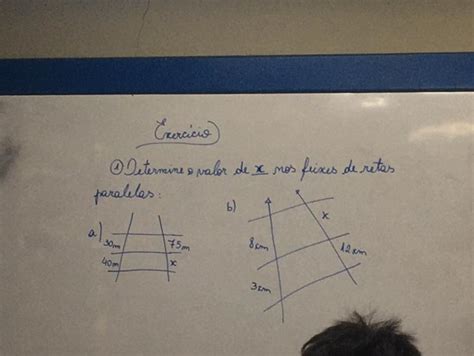 Exercício
① Determine o valor de x nos feixes de retas
paralelas:
a)
30m 75m
40m x
b)
x
8cm 12cm
3cm